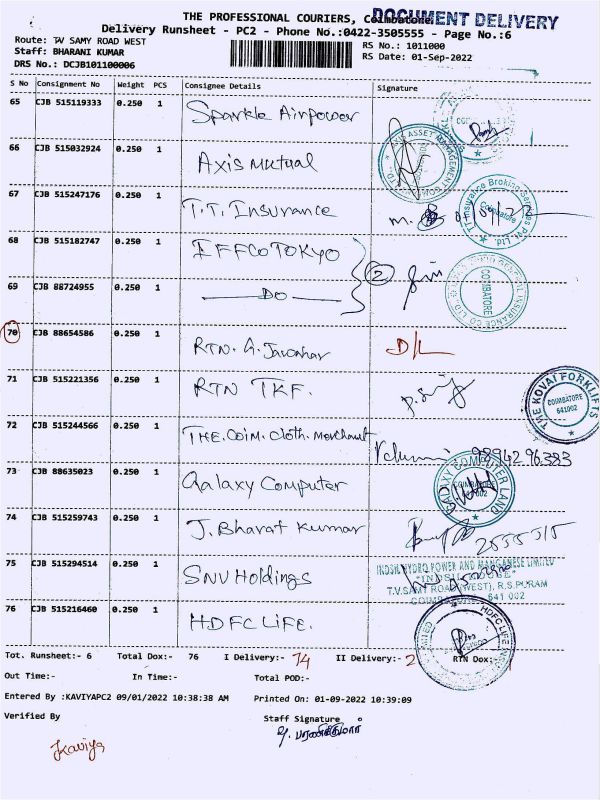 THE PROFESSIONAL COURIERS, Coimbatore.
DOCUMENT DELIVERY
Delivery Runsheet - PC2 - Phone No.:0422-3505555 - Page No.:6
Route: TV SAMY ROAD WEST
RS No.: 1011000
Staff: BHARANI KUMAR
RS Date: 01-Sep-2022
DRS No.: DCJB101100006
S No Consignment No Weight PCS Consignee Details Signature
65 CJB 515119333 0.250 1 Sparkle Airpower
66 CJB 515032924 0.250 1 Axis Mutual
67 CJB 515247176 0.250 1 T.T. Insurance
68 CJB 515182747 0.250 1 IFFCO TOKYO
2
69 CJB 88724955 0.250 1 DO
COIMBATORE
70 CJB 88654586 0.250 1 RTN. G. Jawahar D/L
71 CJB 515221356 0.250 1 RTN TKF.
THE KOVAI FORKLIFTS
COIMBATORE
641002
72 CJB 515244566 0.250 1 THE. Coim. Cloth. Merchant 98942 96383
73 CJB 88635023 0.250 1 Galaxy Computer
GALAXY COMPUTER LAND
74 CJB 515259743 0.250 1 J. Bharat Kumar 2555515
75 CJB 515294514 0.250 1 SNV Holdings
INDSIL HYDRO POWER AND MANGANESE LIMITED
"INDSIL HOUSE"
T.V.SAMY ROAD (WEST), R.S.PURAM
COIMBATORE 641 002
76 CJB 515216460 0.250 1 HDFC LIFE.
HDFC LIFE
Tot. Runsheet:- 6 Total Dox:- 76 I Delivery:- 74 II Delivery:- 2 RTN Dox:
Out Time:- In Time:- Total POD:-
Entered By :KAVIYAPC2 09/01/2022 10:38:38 AM Printed On: 01-09-2022 10:39:09
Verified By Staff Signature
Kaviya